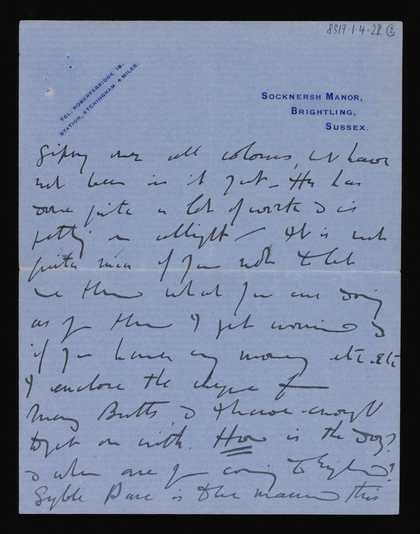 8819.1.4.28
TEL. ROBERTSBRIDGE 19.
STATION, ETCHINGHAM, 4 MILES.
SOCKNERSH MANOR,
BRIGHTLING,
SUSSEX.
Gipsy over all colours, but have
not been in it yet. He has
done quite a lot of work & is
getting on allright. It is not
quite nice of you not to let
me know what you are doing
as you know I get worried &
if you have any money etc. etc
I enclose the cheque for
Mary Butts, & I have enough
to get on with. How is the dog?
& when are you coming to England?
is to be married this